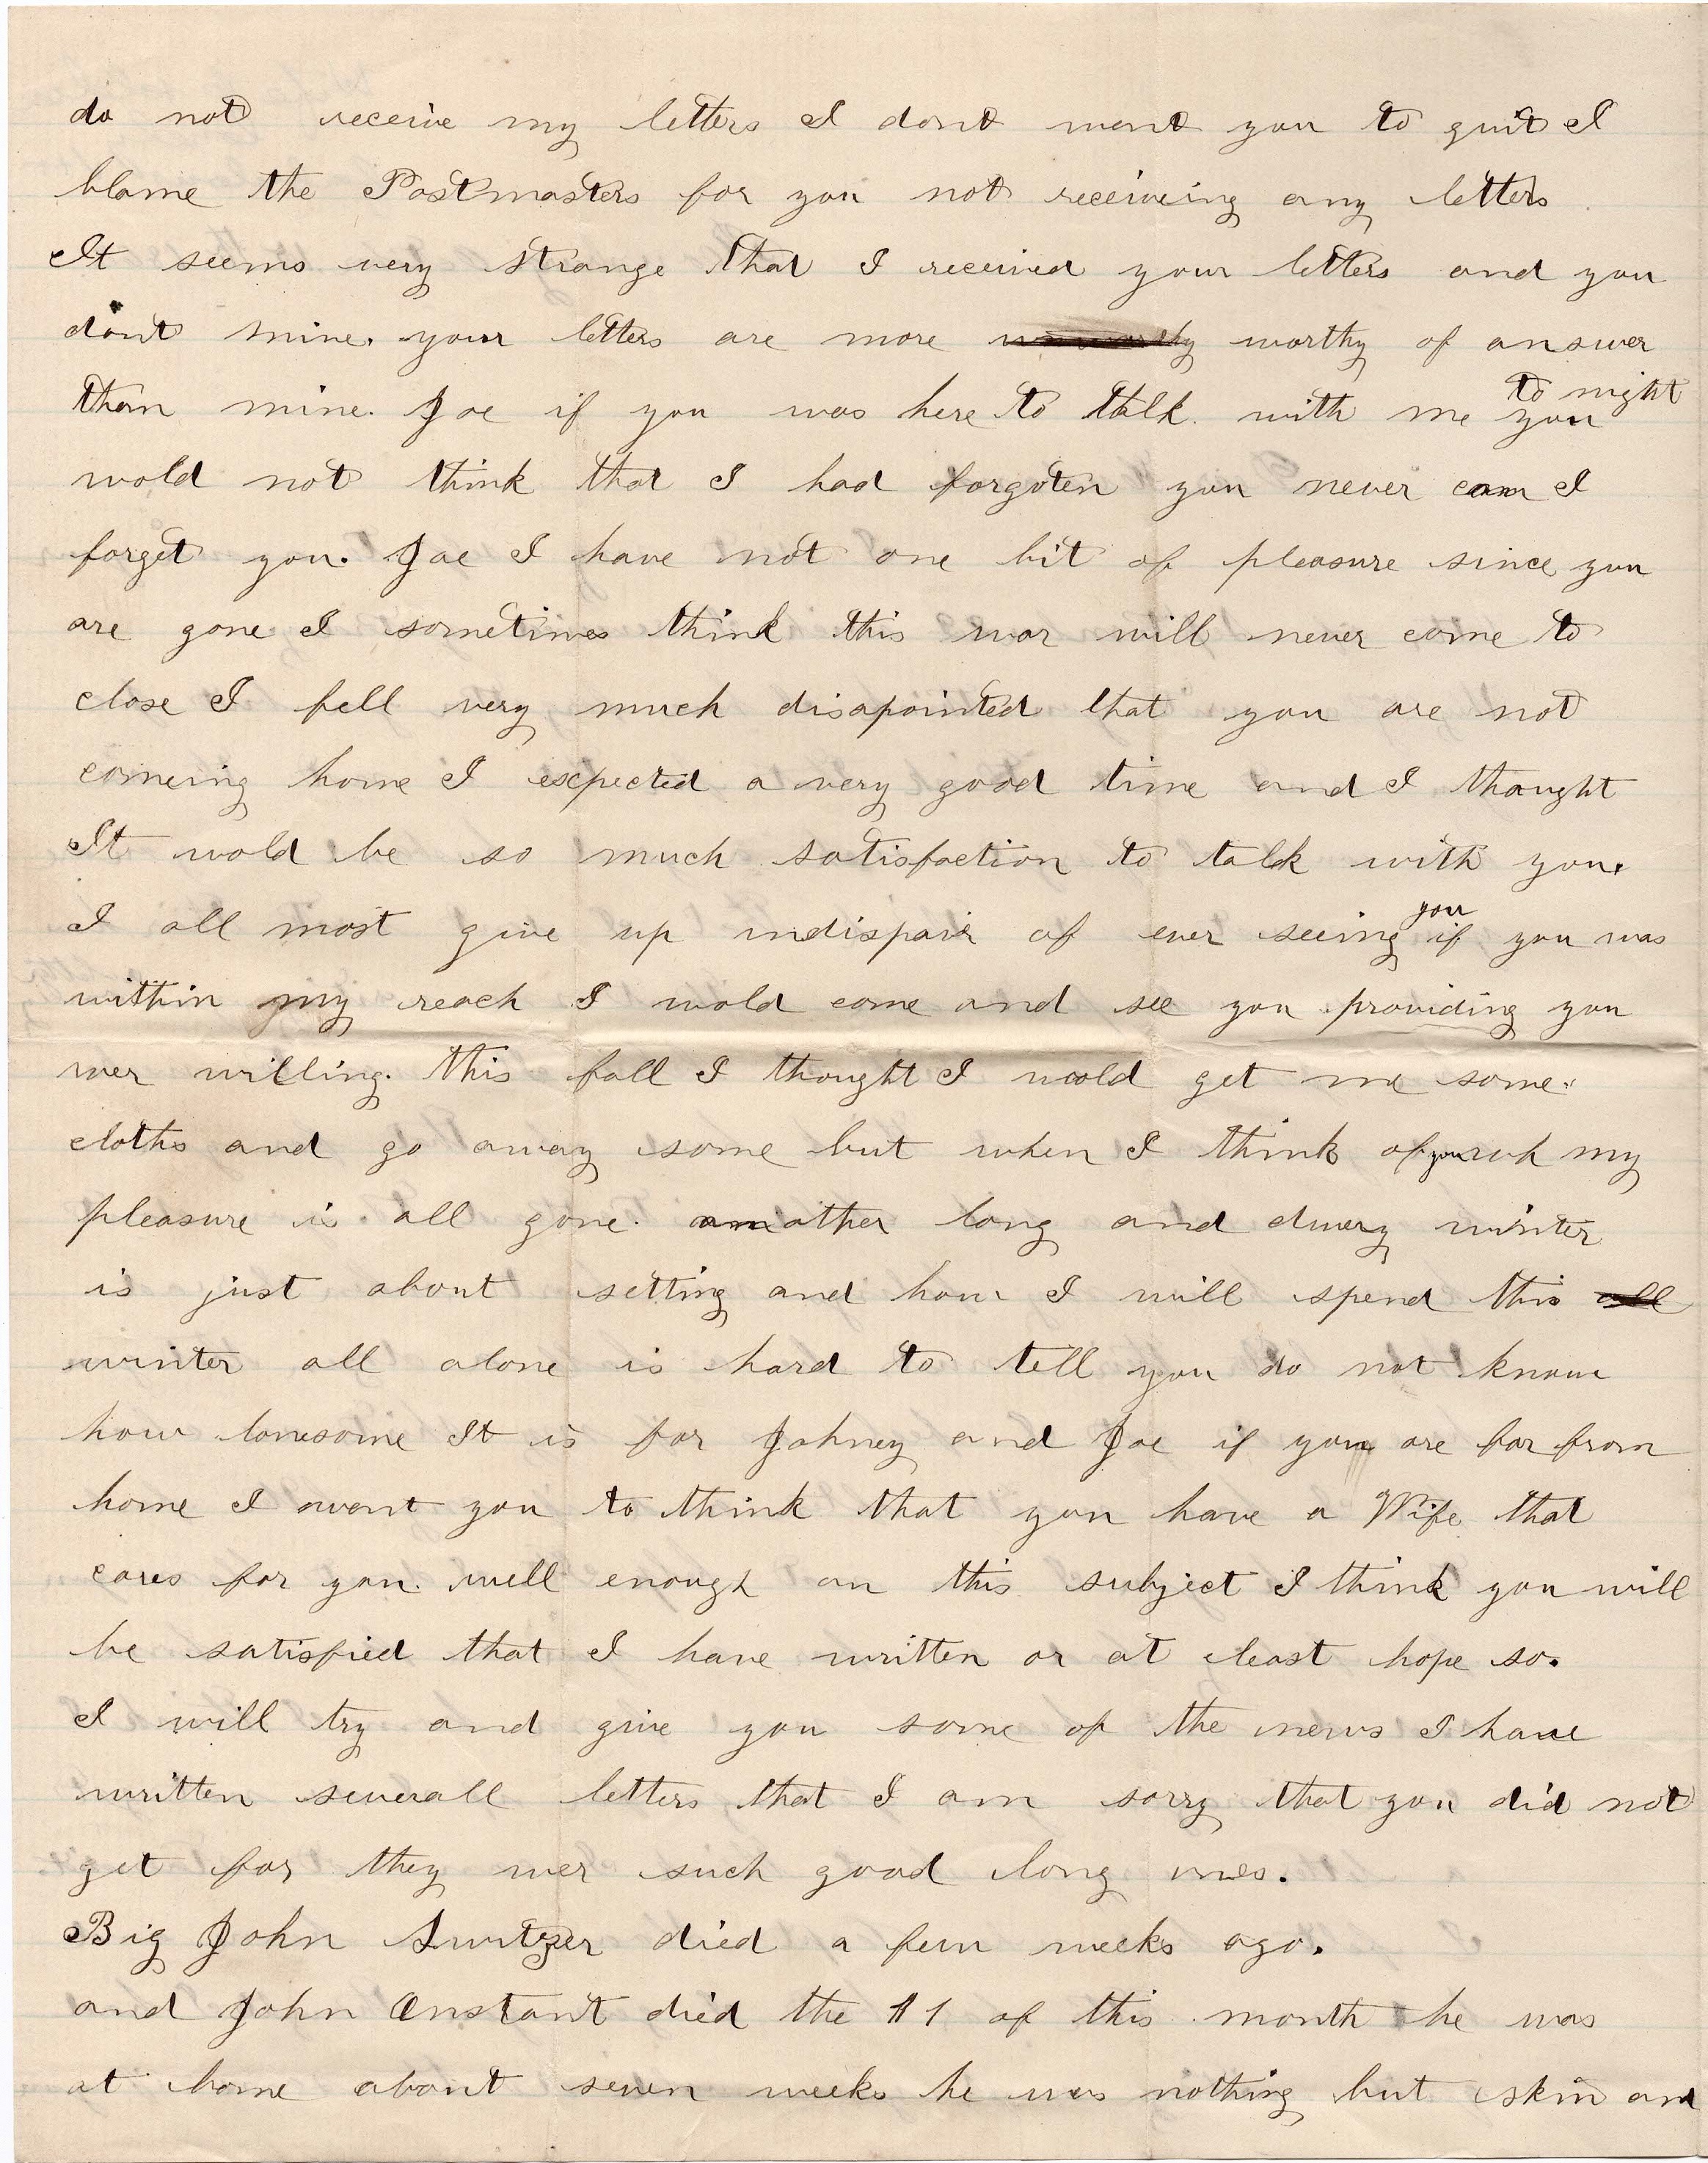 do not receive my letters I dont want you to quit I
blame the Postmasters for you not receiveing any letters
It seems very strange that I received your letters and you
dont mine. your letters are more worthy of answer
than mine. Joe if you was here to talk with me you to night
wold not think that I had forgoten you never can I
forget you. Joe I have not one bit of pleasure since you
are gone I sometimes think this war will never come to
close I fell very much disapointed that you are not
comeing home I expected a very good time and I thought
It wold be so much satisfaction to talk with you.
I all most give up indispair of ever seeing you if you was
within my reach I wold come and see you providing you
wer willing. this fall I thought I wold get me some
cloths and go away some but when I think of you my
pleasure is all gone. another long and druery winter
is just about setting and how I will spend this all
winter all alone is hard to tell you do not know
how lonesome It is for Johney and Joe if you are far from
home I want you to think that you have a Wife that
cares for you. well enough on this subject I think you will
be satisfied that I have written or at least hope so.
I will try and give you some of the news I have
written severall letters that I am sorry that you did not
get for they wer such good long ones.
Big John Switzer died a few weeks ago.
and John Anstant died the 11 of this month he was
at home about seven weeks he was nothing but skin and